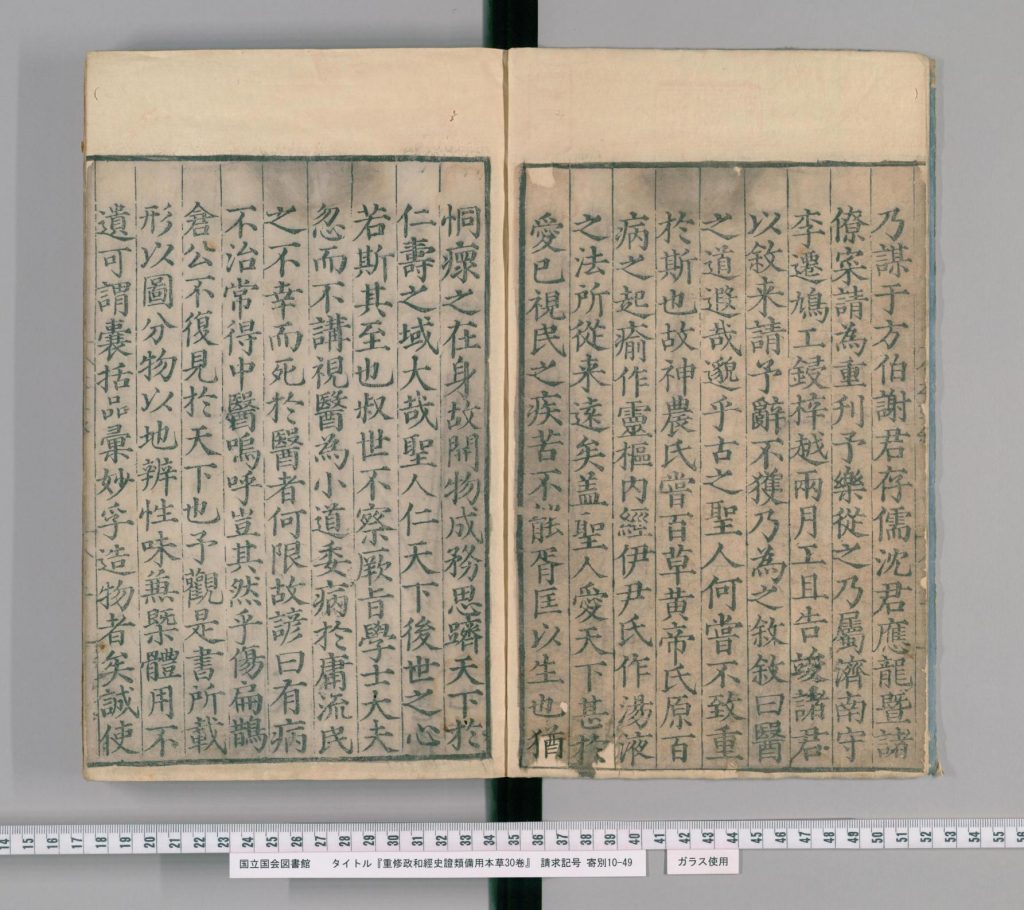 乃謀于方伯謝君存儒沈君應龍暨諸
僚寀請為重刊予樂從之乃屬濟南守
李遷鳩工鋟梓越兩月工且告竣諸君
以敘来請予辭不獲乃為之敘敘曰醫
之道遐哉邈乎古之聖人何嘗不致重
於斯也故神農氏嘗百草黄帝氏原百
病之起瘉作靈樞内經伊尹氏作湯液
之法所從来遠矣盖聖人愛天下甚於
愛已視民之疾苦不能胥匡以生也猶
恫瘝之在身故開物成務思躋天下於
仁壽之域大哉聖人仁天下後世之心
若斯其至也叔世不察厥旨學士大夫
忽而不講視醫為小道委病於庸流民
之不幸而死於醫者何限故諺曰有病
不治常得中醫嗚呼豈其然乎傷扁鵲
倉公不復見於天下也予觀是書所載
形以圖分物以地辨性味兼槩體用不
遺可謂囊括品彙妙孚造物者矣誠使
14 15 16 17 18 19 20 21 22 23 24 25 26 27 28 29 30 31 32 33 34 35 36 37 38 39 40 41 42 43 44 45 46 47 48 49 50 51 52 53 54 55 56
国立国会図書館 タイトル『重修政和經史證類備用本草30巻』 請求記号 寄別10-49
ガラス使用